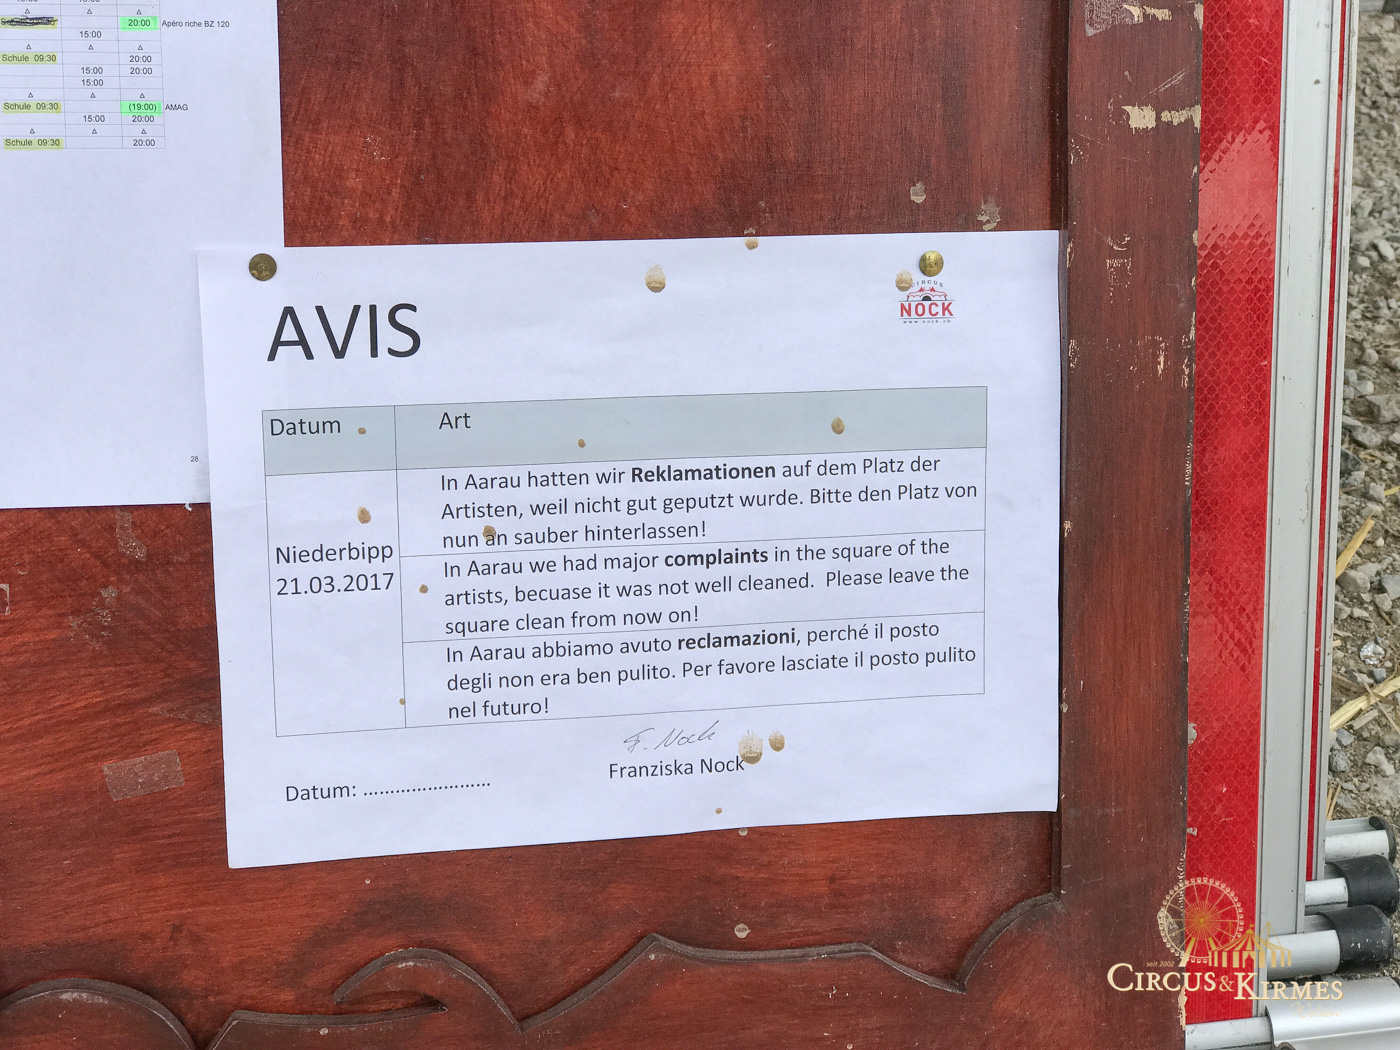 15:00
20:00 Apéro riche BZ 120
15:00
Schule 09:30 20:00
15:00 20:00
15:00
Schule 09:30 (19:00) AMAG
15:00 20:00
Schule 09:30 20:00
28
CIRCUS
NOCK
www.nock.ch
AVIS
Datum Art
Niederbipp
21.03.2017
In Aarau hatten wir Reklamationen auf dem Platz der
Artisten, weil nicht gut geputzt wurde. Bitte den Platz von
nun an sauber hinterlassen!
In Aarau we had major complaints in the square of the
artists, becuase it was not well cleaned. Please leave the
square clean from now on!
In Aarau abbiamo avuto reclamazioni, perché il posto
degli non era ben pulito. Per favore lasciate il posto pulito
nel futuro!
F. Nock
Franziska Nock
Datum: ........................
seit 2002
CIRCUS & KIRMES